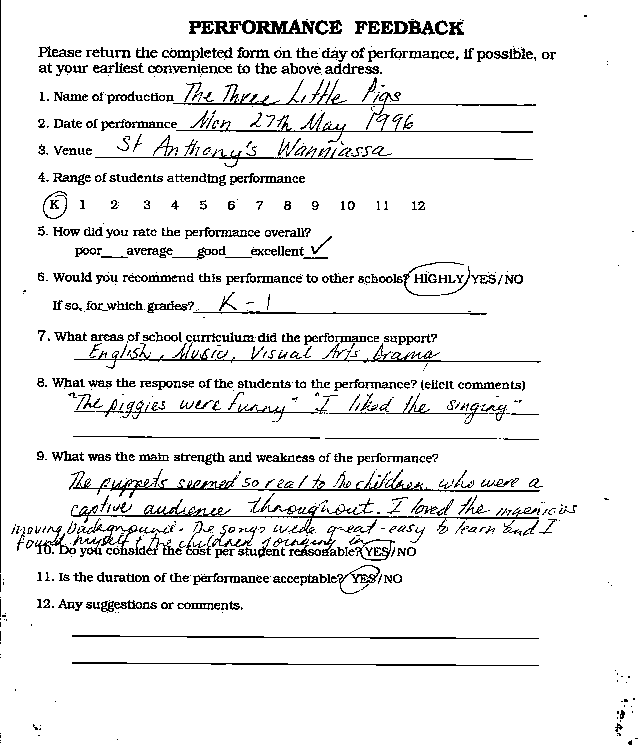 PERFORMANCE FEEDBACK
Please return the completed form on the day of performance, if possible, or
at your earliest convenience to the above address.
1. Name of production The Three Little Pigs
2. Date of performance Mon 27th May 1996
3. Venue St Anthony's Wanniassa
4. Range of students attending performance
K 1 2 3 4 5 6 7 8 9 10 11 12
5. How did you rate the performance overall?
poor__ average__ good__ excellent ✓
6. Would you recommend this performance to other schools? HIGHLY/YES/NO
If so, for which grades? K - 1
7. What areas of school curriculum did the performance support?
English, Music, Visual Arts, Drama
8. What was the response of the students to the performance? (elicit comments)
"The piggies were funny" "I liked the singing"
9. What was the main strength and weakness of the performance?
The puppets seemed so real to the children, who were a
captive audience throughout. I loved the ingenious
moving background. The songs were great - easy to learn and I
found myself & the children joining in
10. Do you consider the cost per student reasonable? YES/NO
11. Is the duration of the performance acceptable? YES/NO
12. Any suggestions or comments.